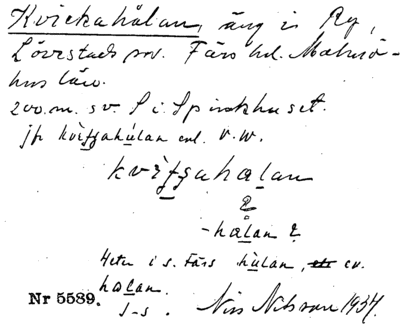 Kvickahålan, äng i Ry,
Lövestads sn. Färs hd. Malmö-
hus län.
200 m. sv. S i Spinkhuset.
jfr kvifgahúlan enl. V.W.
kvifgahalan
-hålan
Heter i s. Färs húlan, ev.
halan.
Nr 5589. s-s. Nils Nilsson 1934.